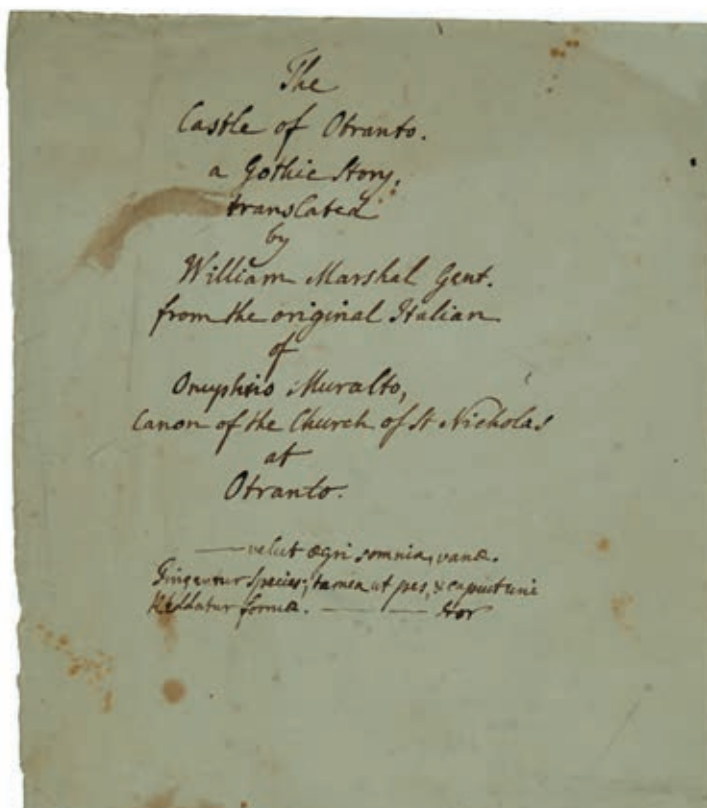 The
Castle of Otranto.
a Gothic Story,
translated
by
William Marshal Gent.
from the original Italian
of
Onuphrio Muralto,
Canon of the Church of St Nicholas
at
Otranto.
—— velut ægri somnia, vanæ.
Fingentur species; tamen ut pes, & caput uni
Reddatur formæ. —— —— Hor